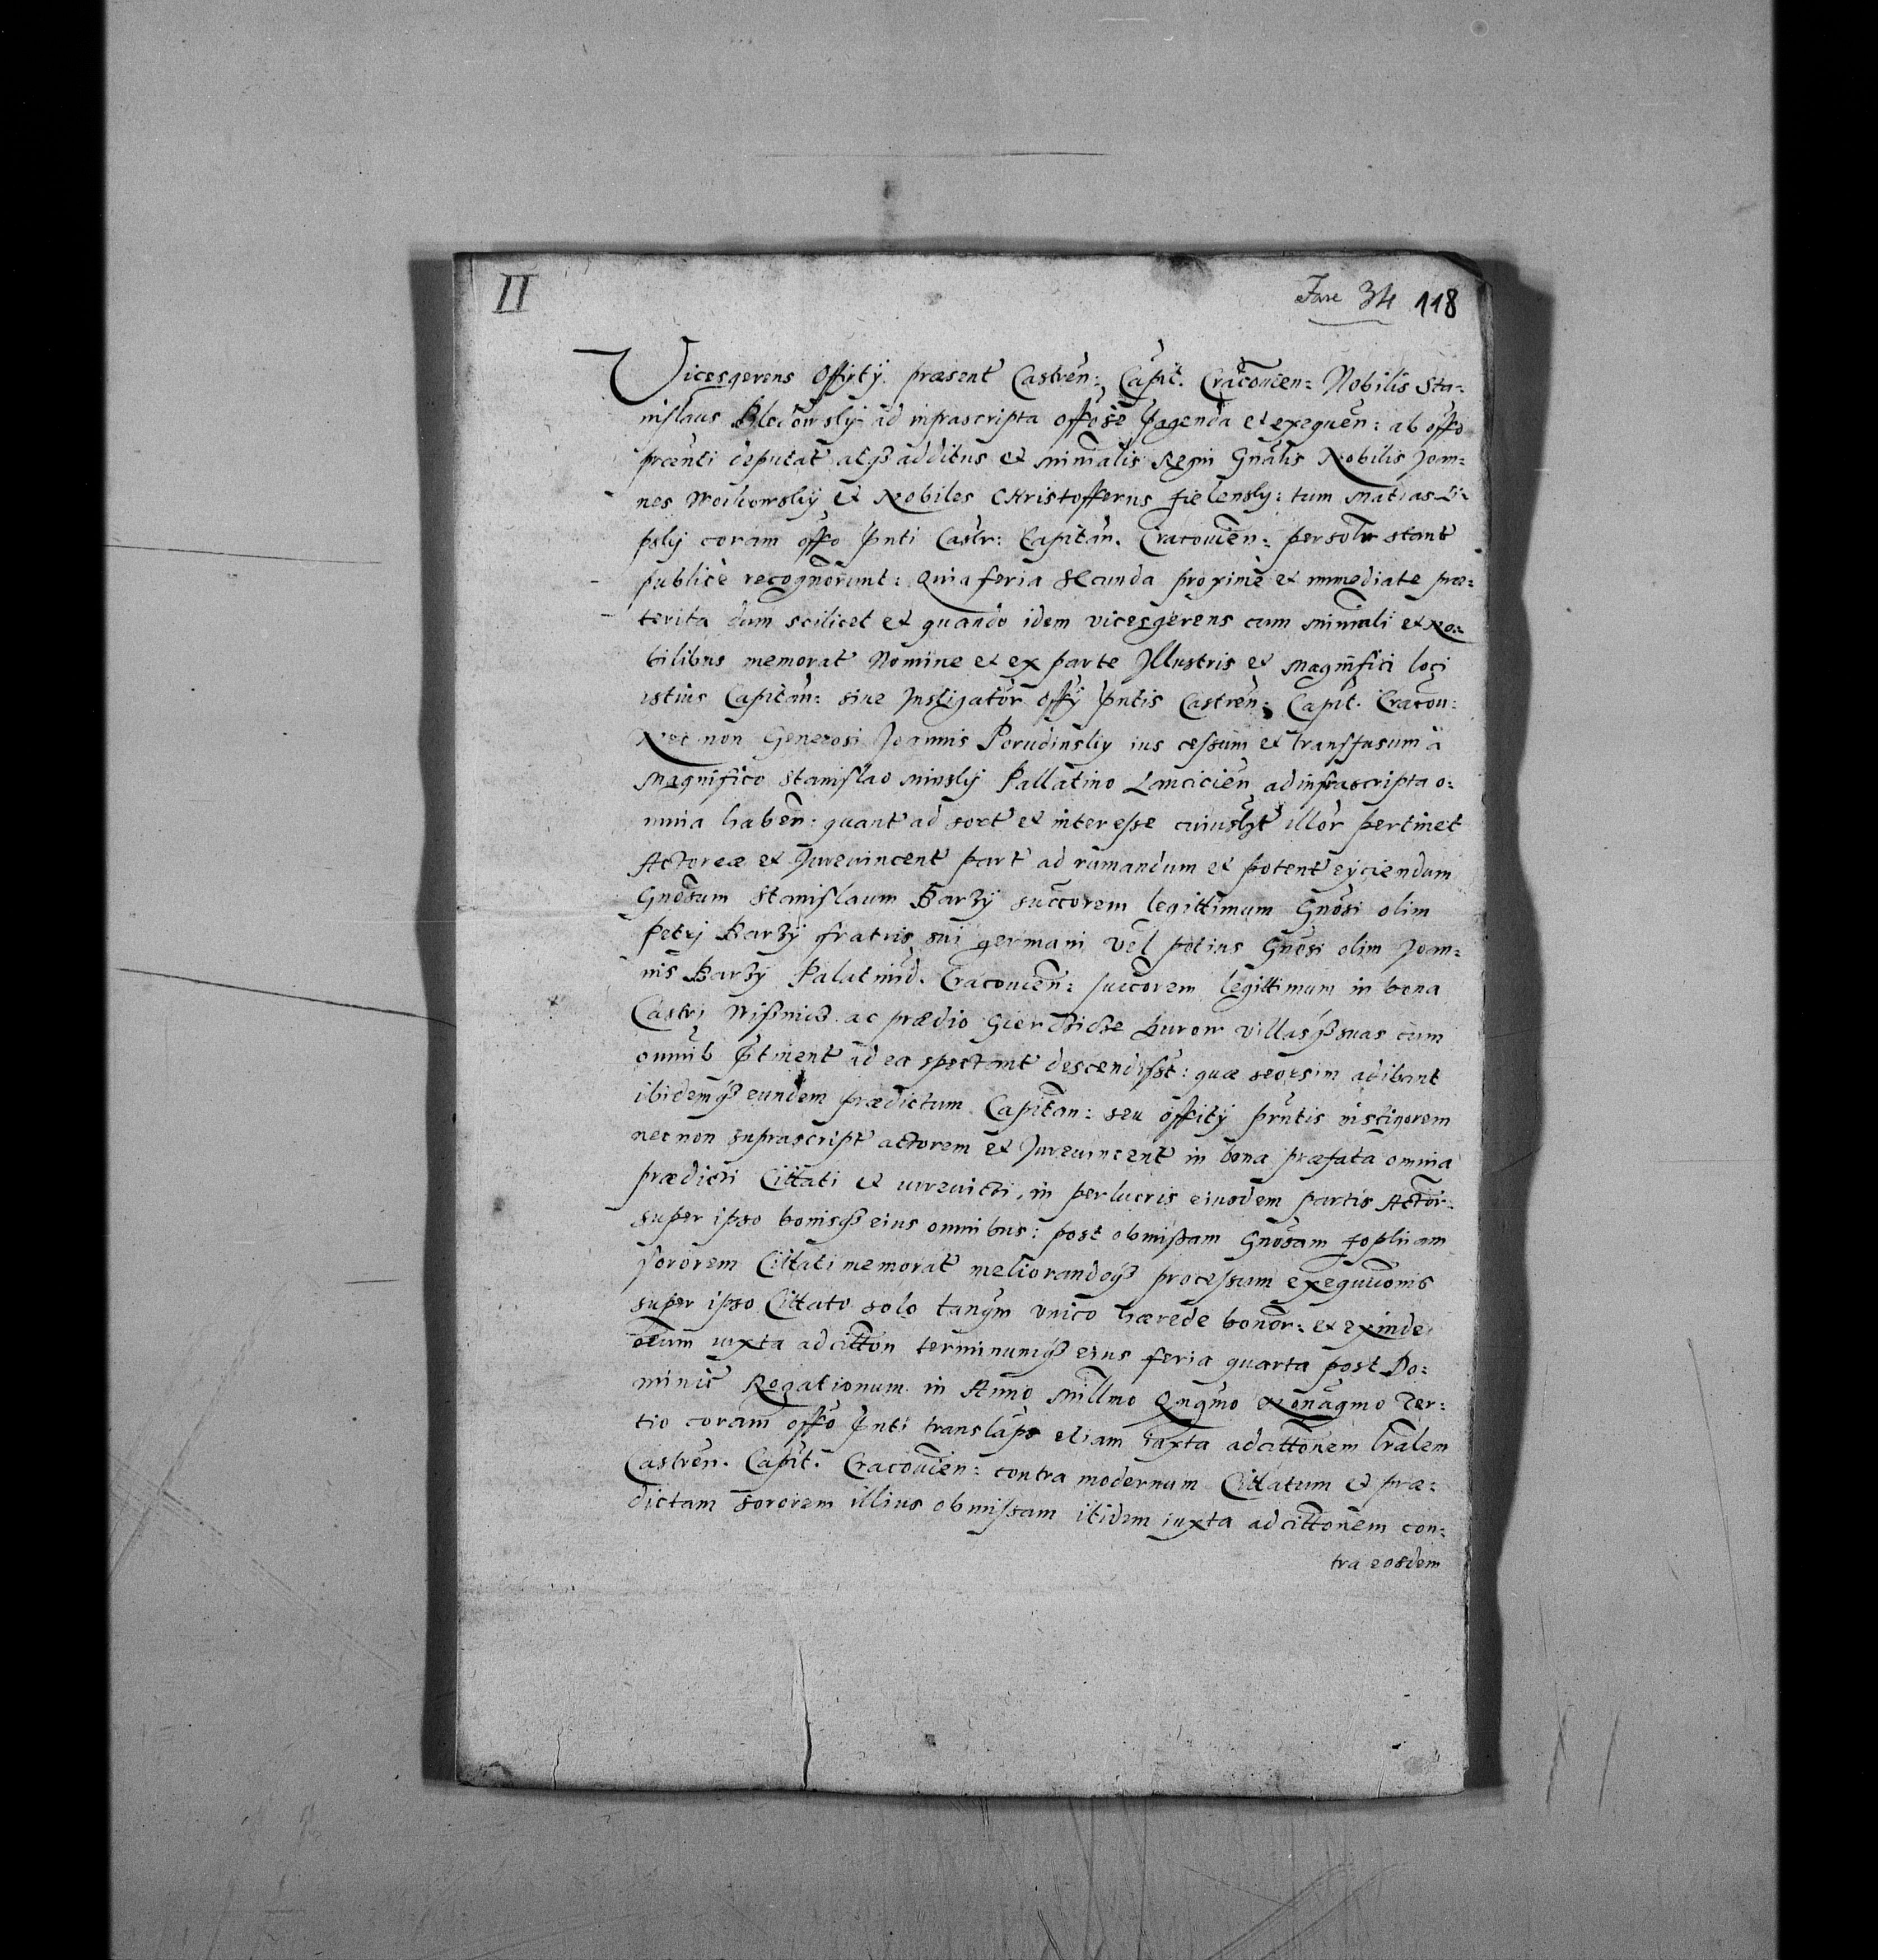 II
Fasc 34 118
Vicesgerens Officÿ præsent Castren: Capit. Cracovien: Nobilis Sta-
nislaus ad infrascripta offőse Pagenda et exequen: ab offo
prænti deputat atqȝ additus et Minialis Regni Gnalis Nobilis Joan-
nes Woikowskÿ et Nobiles Christofferus Zielensky: tum Mathias Li-
psky coram offo Pnti Castr: Capitan. Cracovien: personlr stant
publicè recognorunt: Quia feria secunda proxime et immediate præ-
terita dum scilicet et quando idem vicesgerens cum miniali et No-
bilibus memorat Nomine et ex parte Jllustris et Magnifici loci
istius Capitan: siue Instigator offÿ Pntis Castren: Capit. Cracov:
Nec non Generosi Joannis Porudinskiy ius cessum et transfusum à
Magnifico Stanislao Minsky Pallatino Lancicien ad infrascripta o-
mnia haben: quant ad sort et interesse cuiuslbt illor pertinet
Actoreæ et Jureuincent part ad rumandum et potent eyciendum
Gnosum Stanislaum Barzÿ succorem legittimum Gnosi olim
Petrj Barzÿ fratris sui germani vel potius Gnosi olim Joan-
nis Barzÿ Palatinid. Cracovien: succorem legittimum in bona
Castri ac prædio villasqȝ suas cum
omnib Ptinent ad ea spectant descendisst: quæ seorsim adibant
ibidemqȝ eundem prædictum Capitan: seu officÿ prntis instigorem
nec non suprascript actorem et Jureuincent in bona præfata omnia
prædicti Cittati et iureuicti, in perlucris eiusdem partis Actor:
super ipso bonisqȝ eius omnibus: post obmissam Gnosam Zophiam
sororem Cittati memorat meliorandoqȝ processum exequuonis
super ipso Cittato solo tanqm vnico hærede bonor: et exinde
eum iuxta adcitton terminumqȝ eius feria quarta post Do-
minic Rogationum in Anno Millmo Qngmo Nonagmo Ter-
tio coram offo Pnti translaps etiam iuxta adcittonem lralem
Castren. Capit. Cracovien: contra modernum Cittatum et præ-
dictam sororem illius obmissam itidem iuxta adcittonem con-
tra eosdem